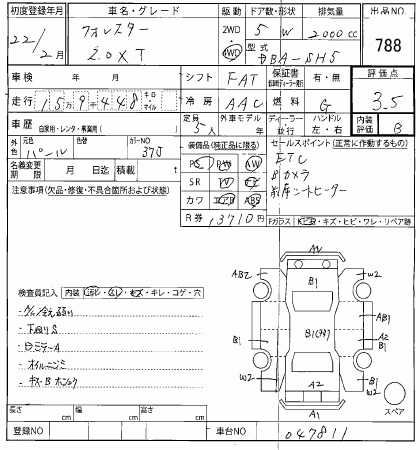 初度登録年月 車名・グレード 駆動 ドア数・形状 排気量 出品NO.
22/2月 フォレスター 2.0XT 2WD 4WD 5 W 2000cc 788
型式 DBA-SH5
車検 年 月 シフト FAT 保証書 有・無 評価点
走行 15万9千448キロ マイル 冷房 AAC 燃料 G 3.5
車歴 自家用・レンタ・事業用( ) 定員 5人 外車モデル 年 ディーラー 並行 ハンドル 左・右 内装評価 B
外色 元色 色 カラーNO 37J
パール
装備品(純正品に限る) セールスポイント(正常に作動するもの)
名義変更期限 月 日迄 積載 t
PS PW AW ETC
SR TV ナビ Bカメラ
カワ エアB ABS 前席シートヒーター
注意事項(欠品・修復・不具合箇所および状態)
R券 13710円 Fガラス キズ・ヒビ・ワレ・リペア跡
検査員記入 内装 ヨゴレ・スレ・キズ・キレ・コゲ・穴
下回りS
オイルニジミ
A2
AB2 W2
B1
B1 AB1
A2
B1
W2 A2 B1 W2
A1 スペア
長さ cm 幅 cm 高さ cm
登録NO 車台NO 047811